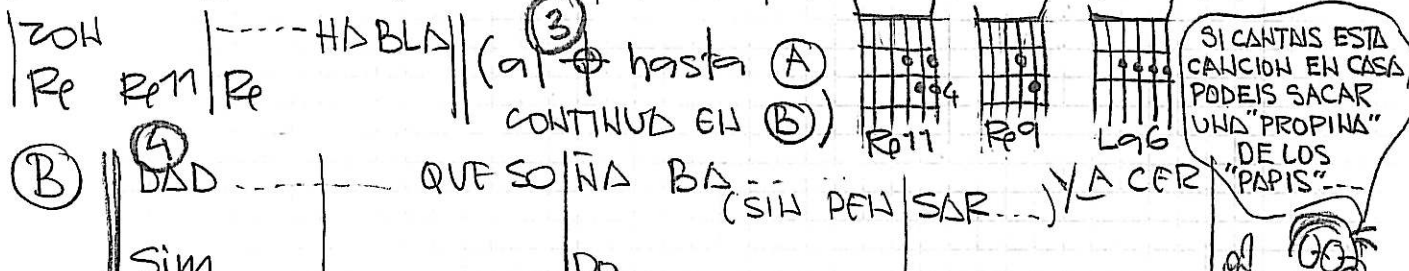 ZON ----- HABLA (al ⊕ hasta Ⓐ
3
Re Re11 Re CONTINUA EN Ⓑ)
4
Re11 Re9 La6
SI CANTAIS ESTA
CANCION EN CASA,
PODEIS SACAR
UNA "PROPINA"
DE LOS
"PAPIS"---
Ⓑ ④ DAD ----- QUE SO ÑA BA -- (SIN PEN SAR...) Y A CER
Sim Do al